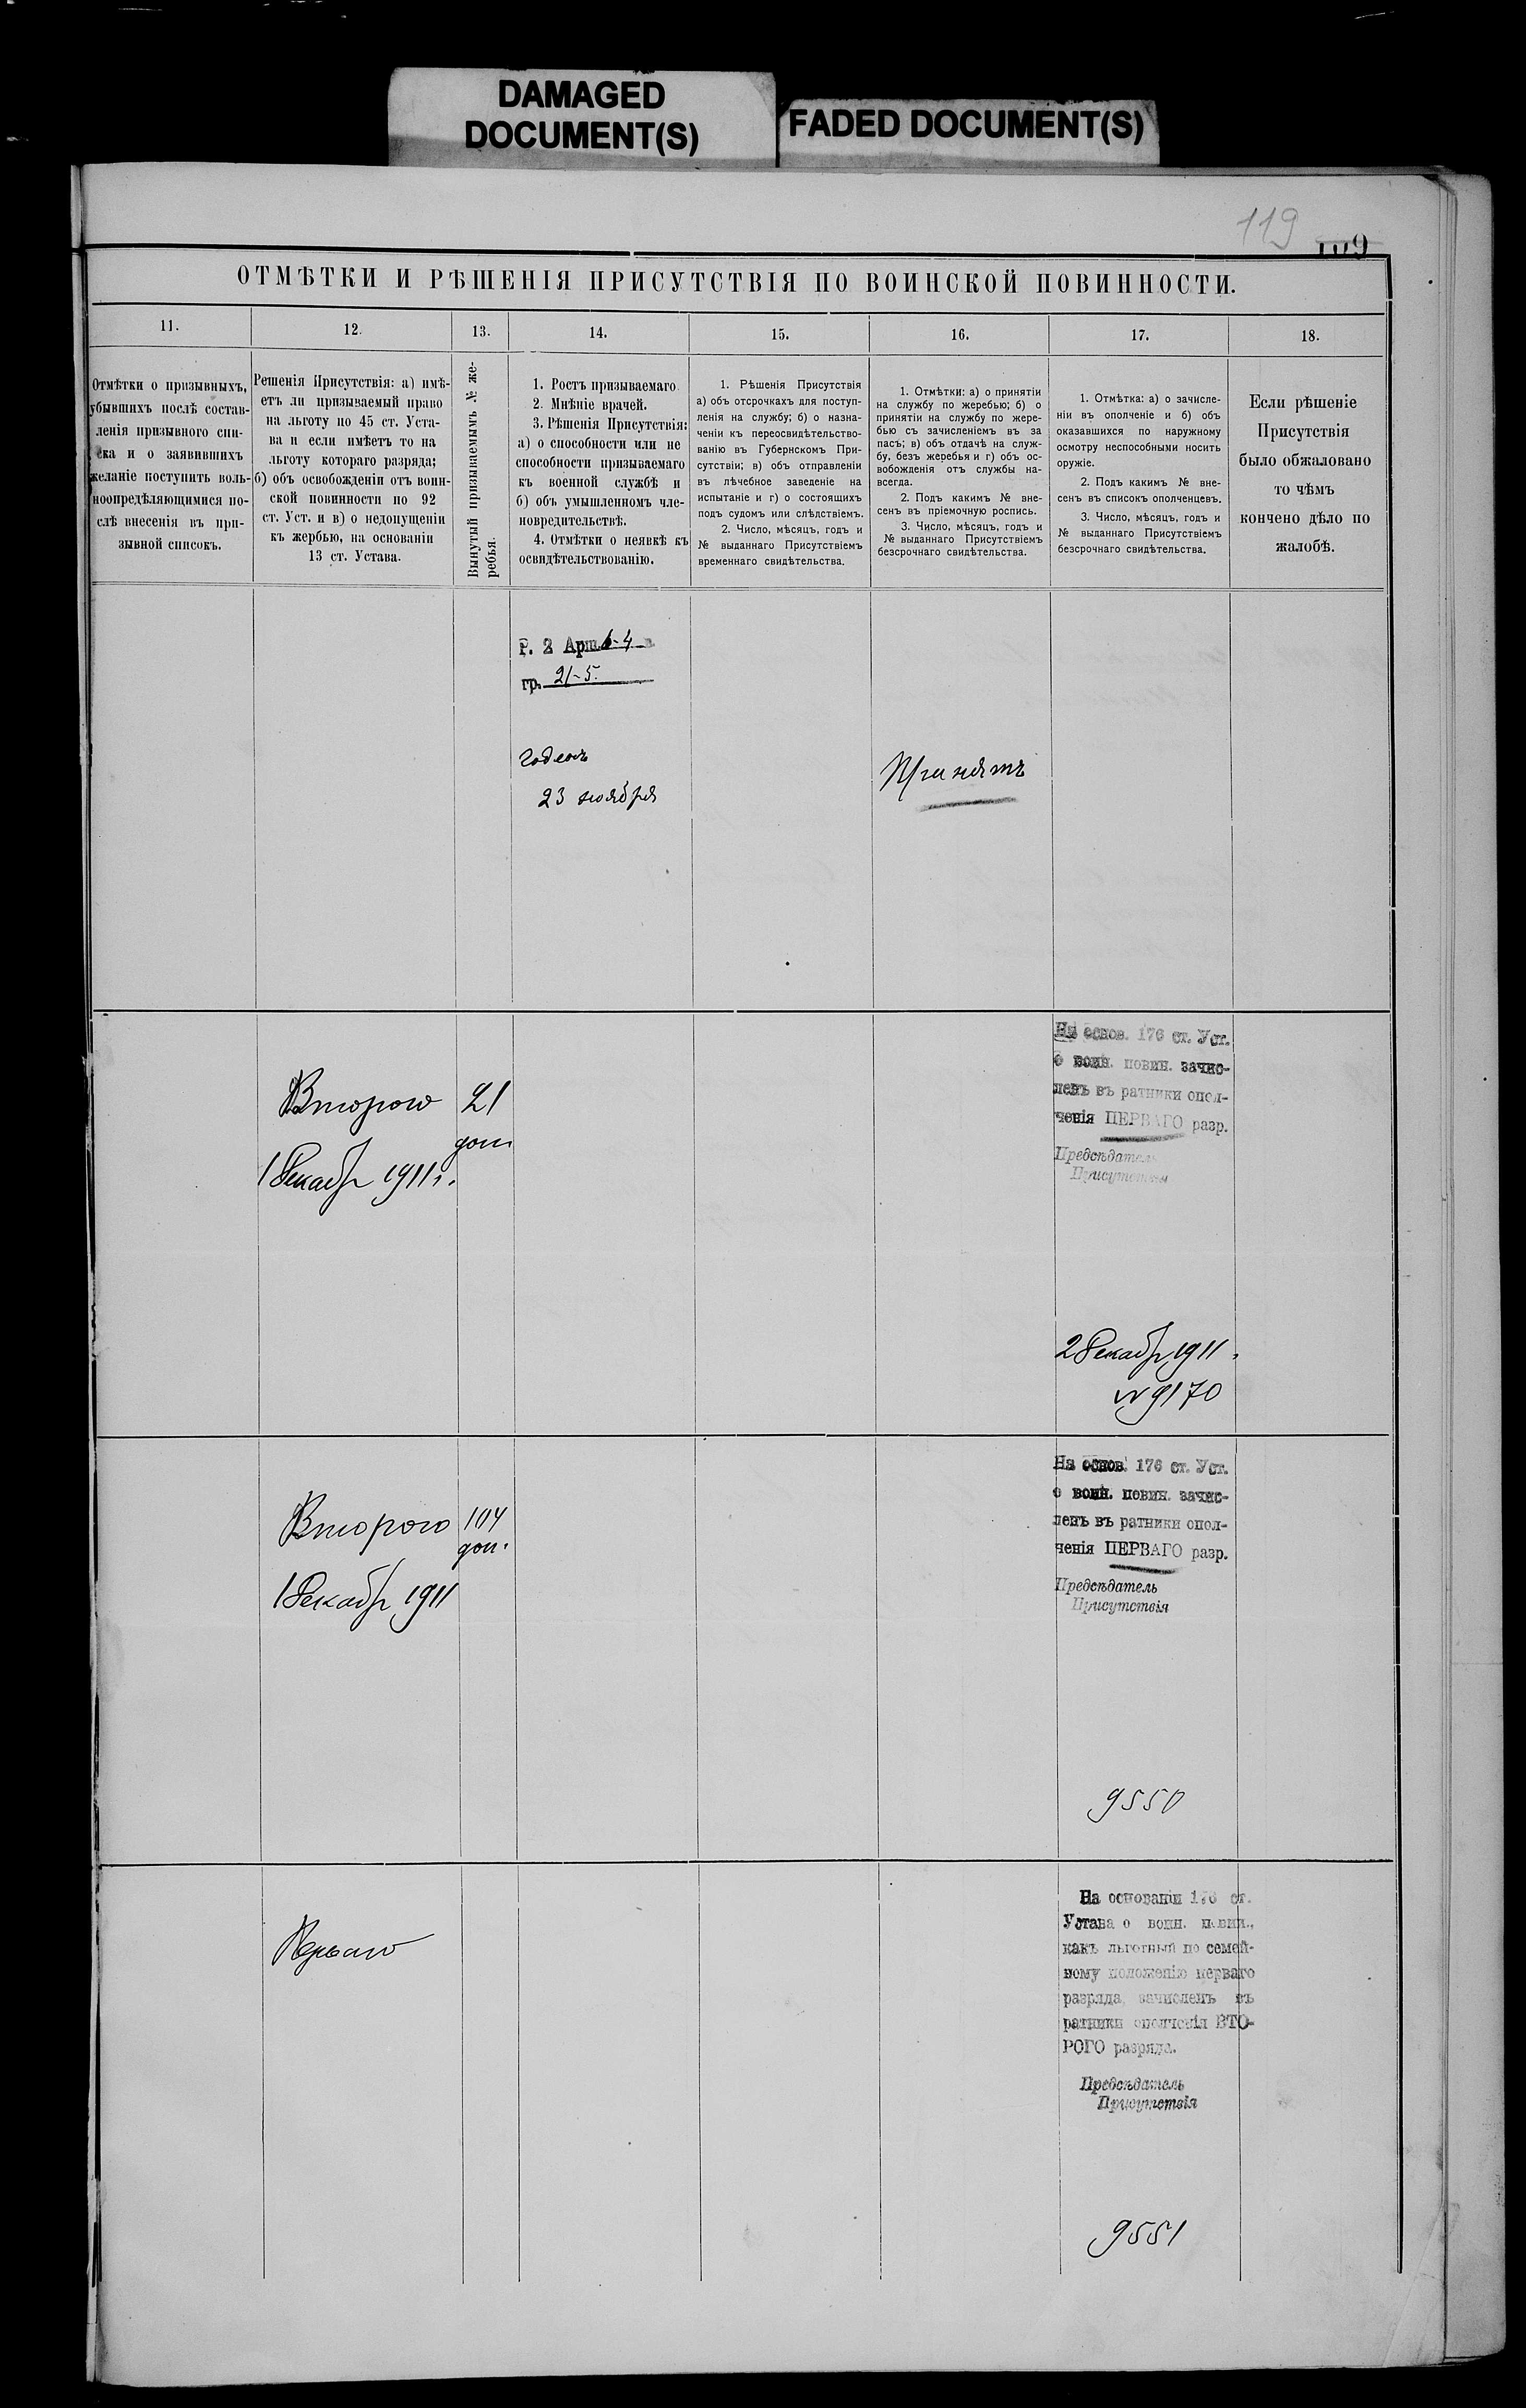 DAMAGED
DOCUMENT(S)
FADED DOCUMENT(S)
119
109
ОТМѢТКИ И РѢШЕНІЯ ПРИСУТСТВІЯ ПО ВОИНСКОЙ ПОВИННОСТИ.
11.
12.
13.
14.
15.
16.
17.
18.
Отмѣтки о призывныхъ,
убывшихъ послѣ состав-
ленія призывного спи-
ска и о заявившихъ
желаніе поступить воль-
ноопредѣляющимися по-
слѣ внесенія въ при-
зывной списокъ.
Решенія Присутствія: а) имѣ-
етъ ли призываемый право
на льготу по 45 ст. Уста-
ва и если имѣетъ то на
льготу котораго разряда;
б) объ освобожденіи отъ воин-
ской повинности по 92
ст. Уст. и в) о недопущеніи
къ жербью, на основаніи
13 ст. Устава.
Вынутый призываемымъ № же-
ребья.
1. Ростъ призываемаго.
2. Мнѣніе врачей.
3. Рѣшенія Присутствія:
а) о способности или не
способности призываемаго
къ военной службѣ и
б) объ умышленномъ чле-
новредительствѣ.
4. Отмѣтки о неявкѣ къ
освидѣтельствованію.
1. Рѣшенія Присутствія
а) объ отсрочкахъ для поступ-
ленія на службу; б) о назна-
ченіи къ переосвидѣтельство-
ванію въ Губернскомъ При-
сутствіи; в) объ отправленіи
въ лѣчебное заведеніе на
испытаніе и г) о состоящихъ
подъ судомъ или слѣдствіемъ.
2. Число, мѣсяцъ, годъ и
№ выданнаго Присутствіемъ
временнаго свидѣтельства.
1. Отмѣтки: а) о принятіи
на службу по жеребью; б) о
принятіи на службу по жере-
бью съ зачисленіемъ въ за
пасъ; в) объ отдачѣ на служ-
бу, безъ жеребья и г) объ ос-
вобожденія отъ службы на-
всегда.
2. Подъ какимъ № вне-
сенъ въ пріемочную роспись.
3. Число, мѣсяцъ, годъ и
№ выданнаго Присутствіемъ
безсрочнаго свидѣтельства.
1. Отмѣтка: а) о зачисле-
ніи въ ополченіе и б) объ
оказавшихся по наружному
осмотру неспособными носить
оружіе.
2. Подъ какимъ № вне-
сенъ въ списокъ ополченцевъ.
3. Число, мѣсяцъ, годъ и
№ выданнаго Присутствіемъ
безсрочнаго свидѣтельства.
Если рѣшеніе
Присутствія
было обжаловано
то чѣмъ
кончено дѣло по
жалобѣ.
Р. 2 Арш. 6-4 в
гр. 21-5.
годенъ
23 ноября
Принятъ
Второго
21
доп
1 Декабр 1911 г.
На основ. 176 ст. Уст.
о воин. повин. зачис-
ленъ въ ратники опол-
ченія ПЕРВАГО разр.
Предсѣдатель
Присутствія
2 Декабр 1911 г
№ 9170
Второго
104
доп.
1 Декабр 1911
На основ. 176 ст. Уст.
о воин. повин. зачис-
ленъ въ ратники опол-
ченія ПЕРВАГО разр.
Предсѣдатель
Присутствія
9550
Перваго
На основаніи 176 ст.
Устава о воин. повин.,
какъ льготный по семей-
ному положенію перваго
разряда, зачисленъ въ
ратники ополченія ВТО-
РОГО разряда.
Предсѣдатель
Присутствія
9551